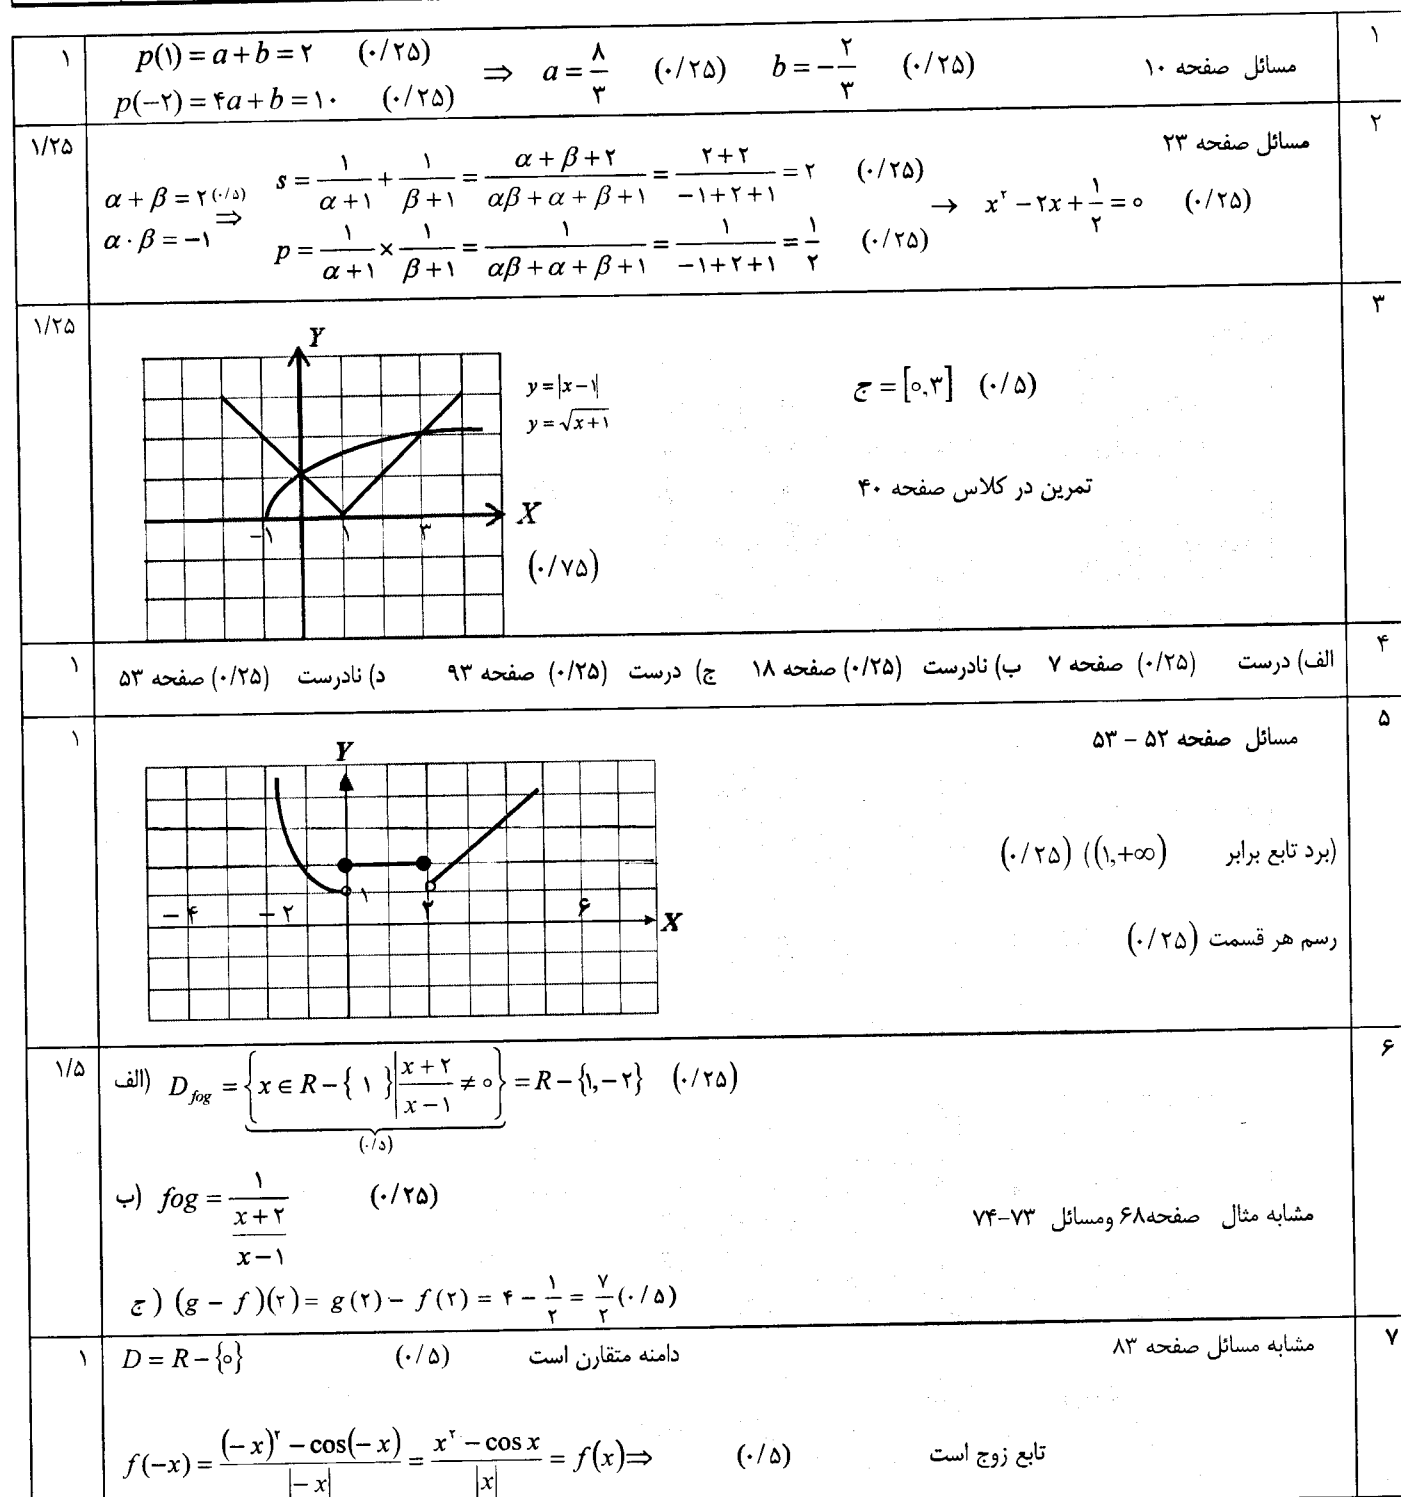 ۱
مسائل صفحه ۱۰
p(۱) = a + b = ۲ (۰/۲۵)
p(−۲) = ۴a + b = ۱۰ (۰/۲۵)
⇒ a = ۸/۳ (۰/۲۵) b = −۲/۳ (۰/۲۵)
۱
۲
مسائل صفحه ۲۳
۱/۲۵
α + β = ۲ (۰/۵)
α · β = −۱ ⇒
s = ۱/(α+۱) + ۱/(β+۱) = (α+β+۲)/(αβ+α+β+۱) = (۲+۲)/(−۱+۲+۱) = ۲ (۰/۲۵)
p = ۱/(α+۱) × ۱/(β+۱) = ۱/(αβ+α+β+۱) = ۱/(−۱+۲+۱) = ۱/۲ (۰/۲۵)
→ x² − ۲x + ۱/۲ = ۰ (۰/۲۵)
۳
۱/۲۵
Y
y = |x − ۱|
y = √(x+۱)
ج = [۰,۳] (۰/۵)
تمرین در کلاس صفحه ۴۰
X
−۱ ۱ ۳
(۰/۷۵)
۴
الف) درست (۰/۲۵) صفحه ۷ ب) نادرست (۰/۲۵) صفحه ۱۸ ج) درست (۰/۲۵) صفحه ۹۳ د) نادرست (۰/۲۵) صفحه ۵۳
۱
۵
مسائل صفحه ۵۲ – ۵۳
۱
Y
(برد تابع برابر (۱,+∞)) (۰/۲۵)
۱
−۴ −۲ ۲ ۶
X
رسم هر قسمت (۰/۲۵)
۶
۱/۵
الف) D_fog = {x ∈ R − {۱} | (x+۲)/(x−۱) ≠ ۰} = R − {۱,−۲} (۰/۲۵)
(۰/۵)
ب) fog = ۱/((x+۲)/(x−۱)) (۰/۲۵)
مشابه مثال صفحه۶۸ ومسائل ۷۳-۷۴
ج) (g − f)(۲) = g(۲) − f(۲) = ۴ − ۱/۲ = ۷/۲ (۰/۵)
۷
مشابه مسائل صفحه ۸۳
۱
D = R − {۰} (۰/۵) دامنه متقارن است
f(−x) = ((−x)² − cos(−x))/|−x| = (x² − cos x)/|x| = f(x) ⇒ (۰/۵) تابع زوج است